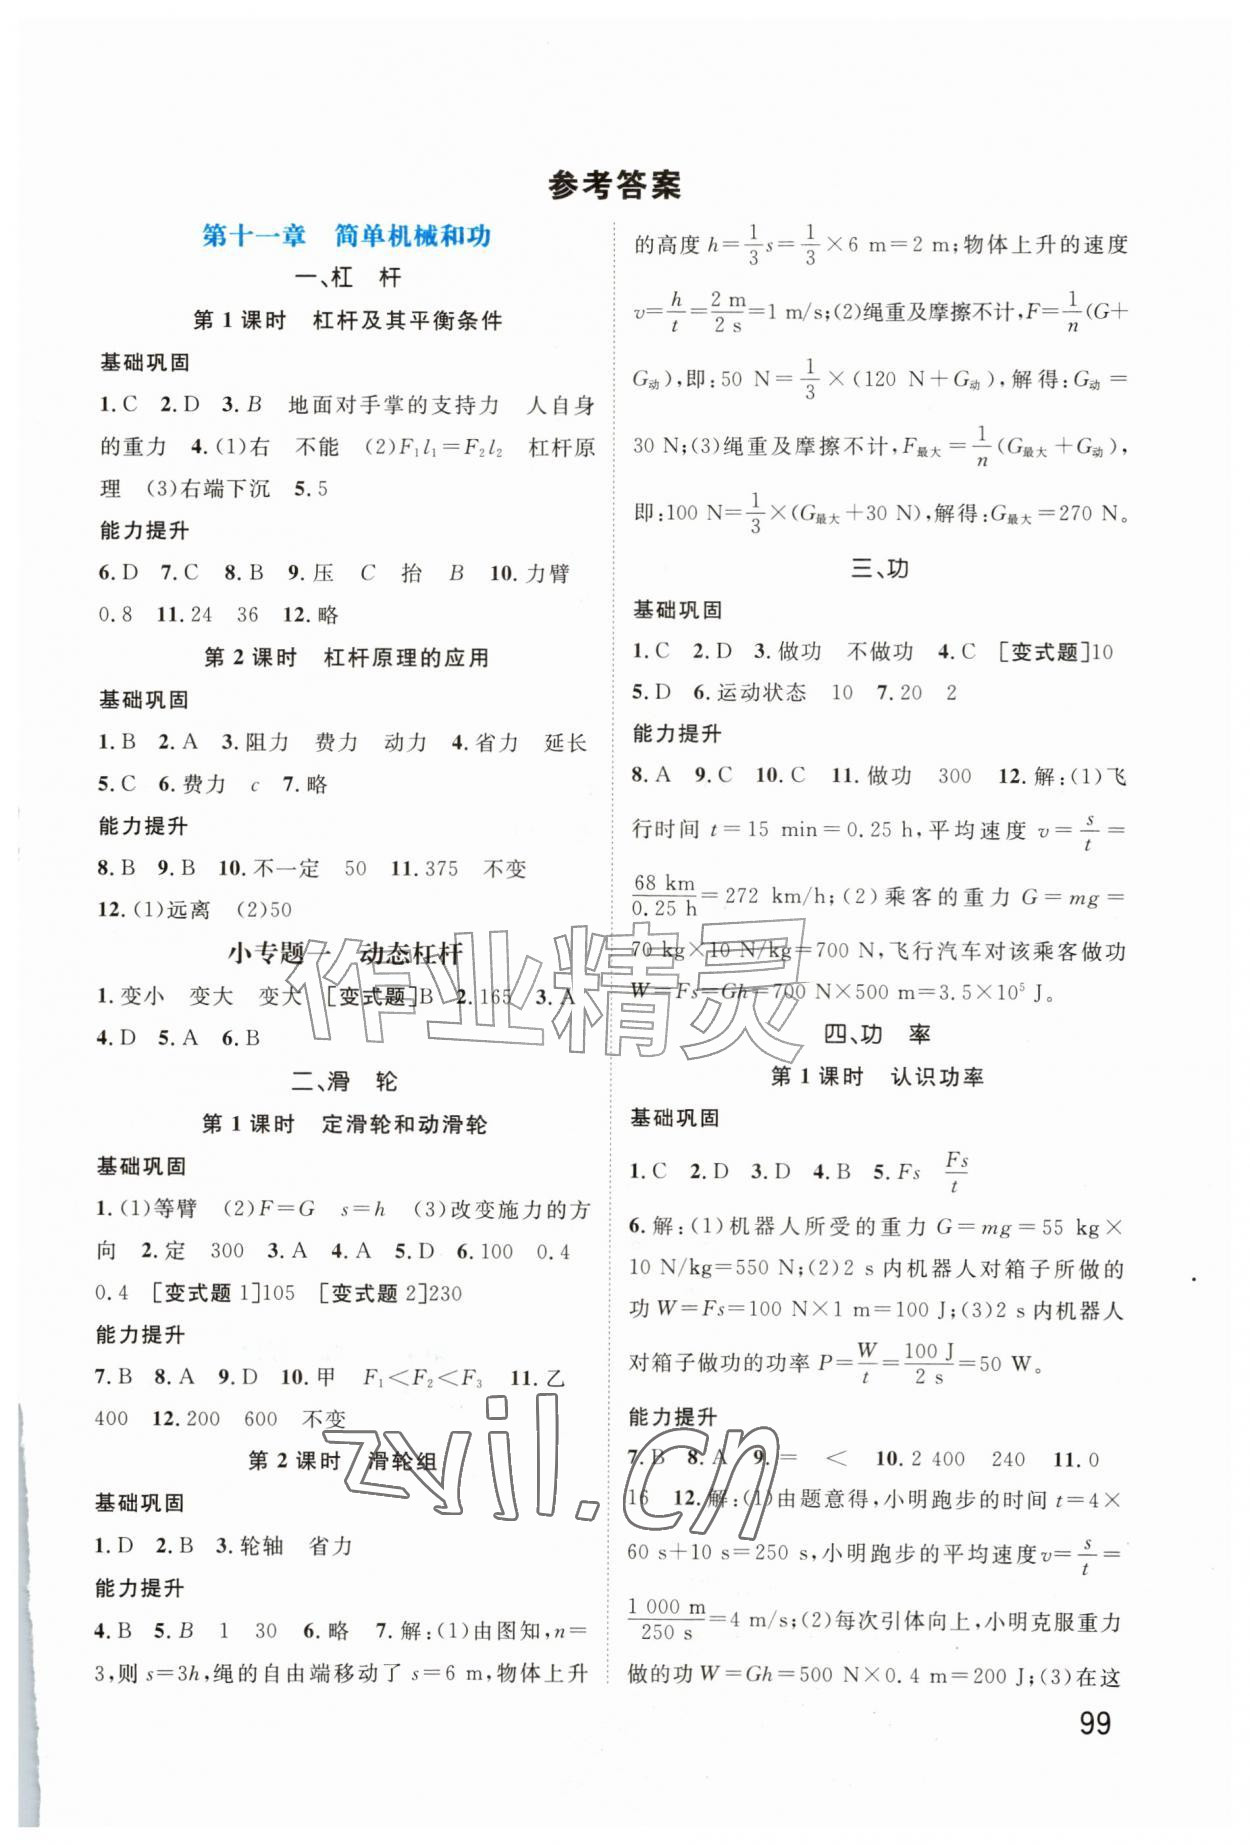 参考答案
第十一章 简单机械和功
一、杠 杆
第1课时 杠杆及其平衡条件
基础巩固
1.C 2.D 3.B 地面对手掌的支持力 人自身
的重力 4.(1)右 不能 (2)F₁l₁=F₂l₂ 杠杆原
理 (3)右端下沉 5.5
能力提升
6.D 7.C 8.B 9.压 C 抬 B 10.力臂
0.8 11.24 36 12.略
第2课时 杠杆原理的应用
基础巩固
1.B 2.A 3.阻力 费力 动力 4.省力 延长
5.C 6.费力 c 7.略
能力提升
8.B 9.B 10.不一定 50 11.375 不变
12.(1)远离 (2)50
小专题一 动态杠杆
1.变小 变大 变大 [变式题]B 2.165 3.A
4.D 5.A 6.B
二、滑 轮
第1课时 定滑轮和动滑轮
基础巩固
1.(1)等臂 (2)F=G s=h (3)改变施力的方
向 2.定 300 3.A 4.A 5.D 6.100 0.4
0.4 [变式题1]105 [变式题2]230
能力提升
7.B 8.A 9.D 10.甲 F₁<F₂<F₃ 11.乙
400 12.200 600 不变
第2课时 滑轮组
基础巩固
1.D 2.B 3.轮轴 省力
能力提升
4.B 5.B 1 30 6.略 7.解:(1)由图知,n=
3,则s=3h,绳的自由端移动了s=6 m,物体上升
的高度h=1/3 s=1/3×6 m=2 m;物体上升的速度
v=h/t=2 m/2 s=1 m/s;(2)绳重及摩擦不计,F=1/n(G+
G动),即:50 N=1/3×(120 N+G动),解得:G动=
30 N;(3)绳重及摩擦不计,F最大=1/n(G最大+G动),
即:100 N=1/3×(G最大+30 N),解得:G最大=270 N。
三、功
基础巩固
1.C 2.D 3.做功 不做功 4.C [变式题]10
5.D 6.运动状态 10 7.20 2
能力提升
8.A 9.C 10.C 11.做功 300 12.解:(1)飞
行时间t=15 min=0.25 h,平均速度v=s/t=
68 km/0.25 h=272 km/h;(2)乘客的重力G=mg=
70 kg×10 N/kg=700 N,飞行汽车对该乘客做功
W=Fs=Gh=700 N×500 m=3.5×10⁵ J。
四、功 率
第1课时 认识功率
基础巩固
1.C 2.D 3.D 4.B 5.Fs Fs/t
6.解:(1)机器人所受的重力G=mg=55 kg×
10 N/kg=550 N;(2)2 s内机器人对箱子所做的
功W=Fs=100 N×1 m=100 J;(3)2 s内机器人
对箱子做功的功率P=W/t=100 J/2 s=50 W。
能力提升
7.B 8.A 9.= < 10.2 400 240 11.0
16 12.解:(1)由题意得,小明跑步的时间t=4×
60 s+10 s=250 s,小明跑步的平均速度v=s/t=
1 000 m/250 s=4 m/s;(2)每次引体向上,小明克服重力
做的功W=Gh=500 N×0.4 m=200 J;(3)在这
作业精灵
zyjl.cn
99